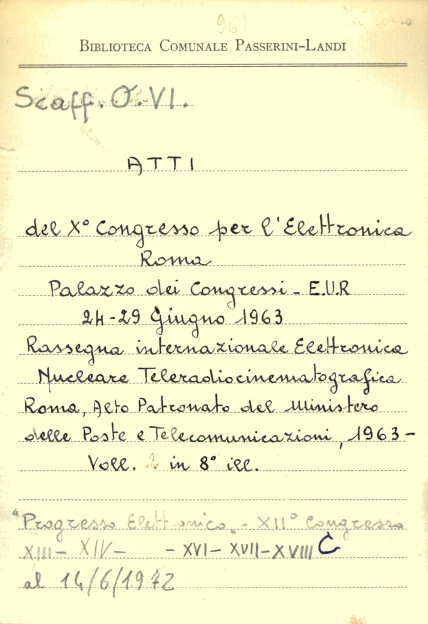 96
BIBLIOTECA COMUNALE PASSERINI-LANDI
Scaff. O. VI.
ATTI
del X° Congresso per l'Elettronica
Roma
Palazzo dei Congressi - E.U.R
24-29 Giugno 1963
Rassegna internazionale Elettronica
Nucleare Teleradiocinematografica
Roma, Alto Patronato del Ministero
delle Poste e Telecomunicazioni, 1963-
Voll. 2 in 8° ill.
"Progresso Elettronico" - XII° Congresso
XIII - XIV - - XVI - XVII - XVIII C
al 14/6/1972